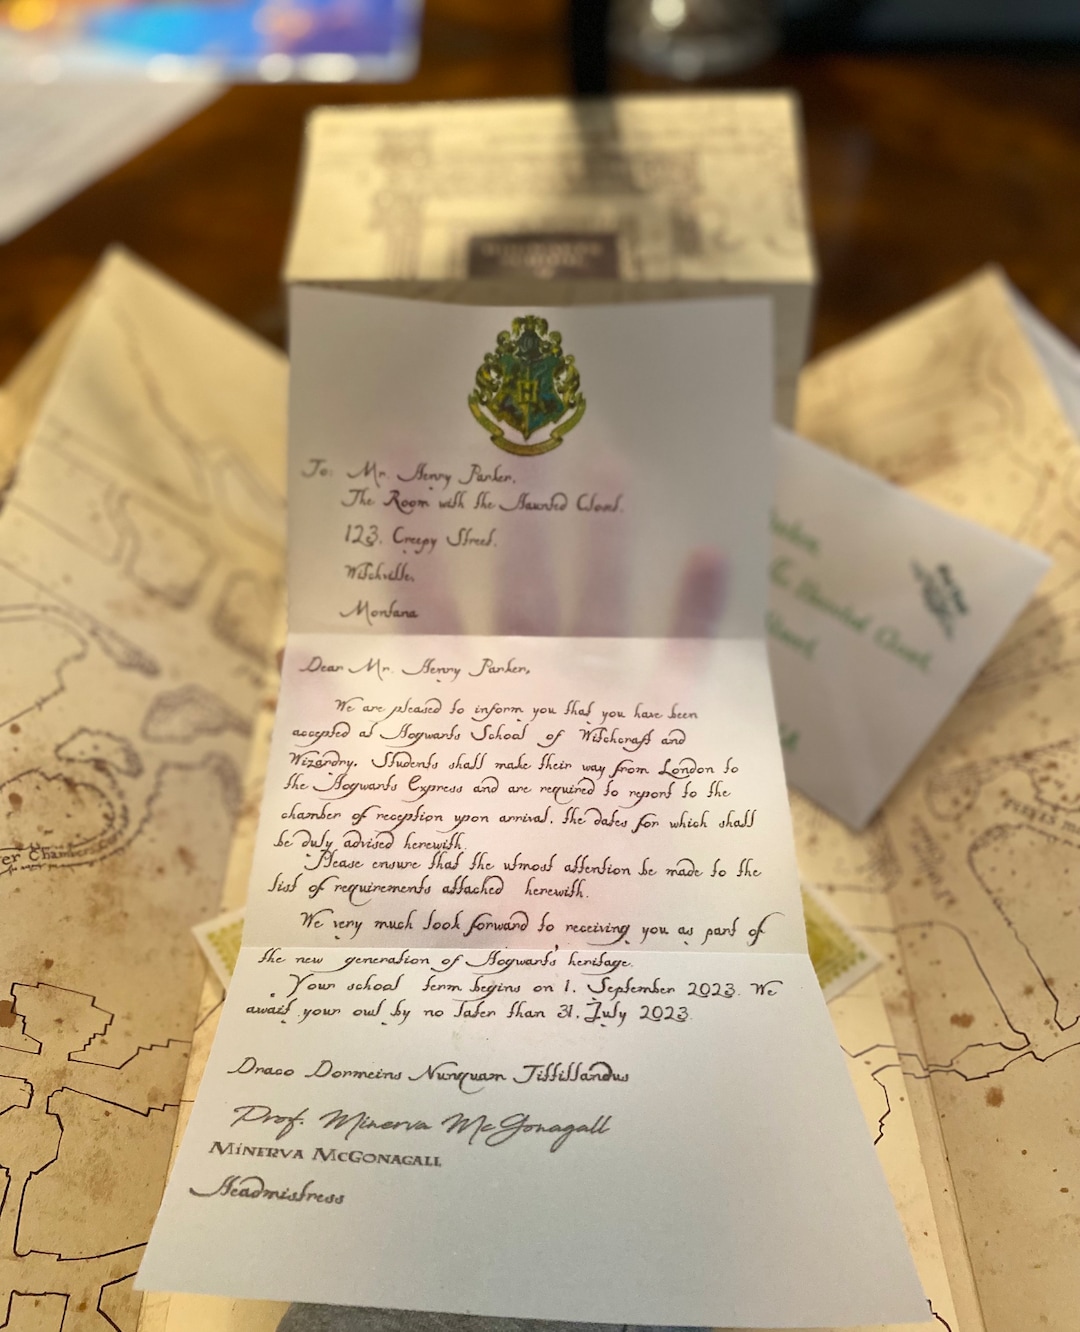 H
To: Mr. Henry Parker,
The Room with the Haunted Closet,
123, Creepy Street,
Witchville,
Montana
Haunted Closet
Dear Mr. Henry Parker,
We are pleased to inform you that you have been
accepted at Hogwarts School of Witchcraft and
Wizardry. Students shall make their way from London to
the Hogwarts Express and are required to report to the
chamber of reception upon arrival, the dates for which shall
be duly advised herewith.
Please ensure that the utmost attention be made to the
list of requirements attached herewith.
We very much look forward to receiving you as part of
the new generation of Hogwart's heritage.
Your school term begins on 1, September 2023. We
await your owl by no later than 31, July 2023.
Draco Dormeins Nunquam Tittillandus
Prof. Minerva McGonagall
MINERVA MCGONAGALL
Headmistress